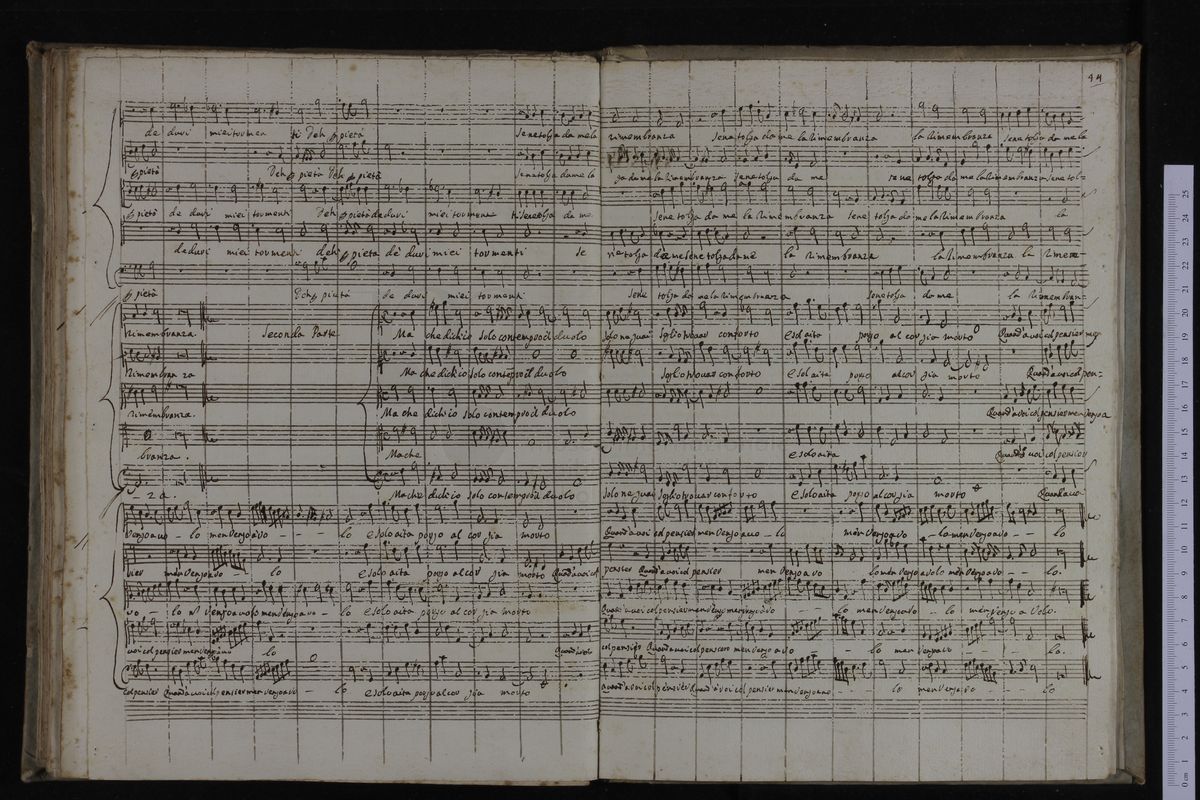 44
de duri miei tormen ti deh ꝑ pietà se ne tolga da me la rimembranza se ne tolga da me la rimembranza la rimembranza se ne tolga da me la
ꝑ pietà deh ꝑ pietà deh ꝑ pietà se ne tolga da me la rimembranza se ne tolga da me se ne tolga da me la rimembranza se ne tol-
ꝑ pietà de duri miei tormenti deh ꝑ pietà de duri miei tormen ti se ne tolga da me se ne tolga da me la rimembranza se ne tolga da me la rimembranza la
de duri miei tormenti deh ꝑ pietà de duri miei tormenti se ne tolga da me se ne tolga da me la rimembranza la rimembranza la rimem-
ꝑ pietà deh ꝑ pietà de duri miei tormenti se ne tolga da me la rimembranza se ne tolga da me la rimembran-
rimembranza. Seconda Parte Ma che dich'io solo contempro il duolo soglio trovar conforto e sol aita porgo al cor gia morto Quand'a voi col pensier
rimembranza Ma che dich'io solo contempro il duolo soglio trovar conforto e sol aita porgo al cor gia morto Quand'a voi col pen-
rimembranza. Ma che dich'io solo contempro il duolo Quand'a voi col pensier men vengo a
branza. Ma che e sol aita Quand'a voi col pensier
2a. Ma che dich'io solo contempro il duolo soglio trovar conforto e sol aita porgo al cor gia morto Quand'a vo-
vengo a vo - lo men vengo a vo - - - lo e sol aita porgo al cor gia morto Quand'a voi col pensier men vengo a vo - lo men vengo a vo - lo men vengo a vo - - lo
sier men vengo a vo - lo e sol aita porgo al cor gia morto Quand'a voi col pensier Quand'a voi col pensier men vengo a vo lo men vengo a volo men vengo a vo - - lo.
vo - - lo men vengo a vo - lo e sol aita porgo al cor gia morto Quand'a voi col pensier men vengo a vo - - - lo men vengo a vo - lo men vengo a volo.
voi col pensier men vengo a vo lo Quand'a voi col pensier Quand'a voi col pensier men vengo a vo - - lo men vengo a vo - - - lo.
col pensier Quand'a voi col pensier men vengo a vo - - lo e sol aita porgo al cor gia morto Quand'a voi col pensier Quand'a voi col pensier men vengo a vo - - - lo men vengo a vo - - lo